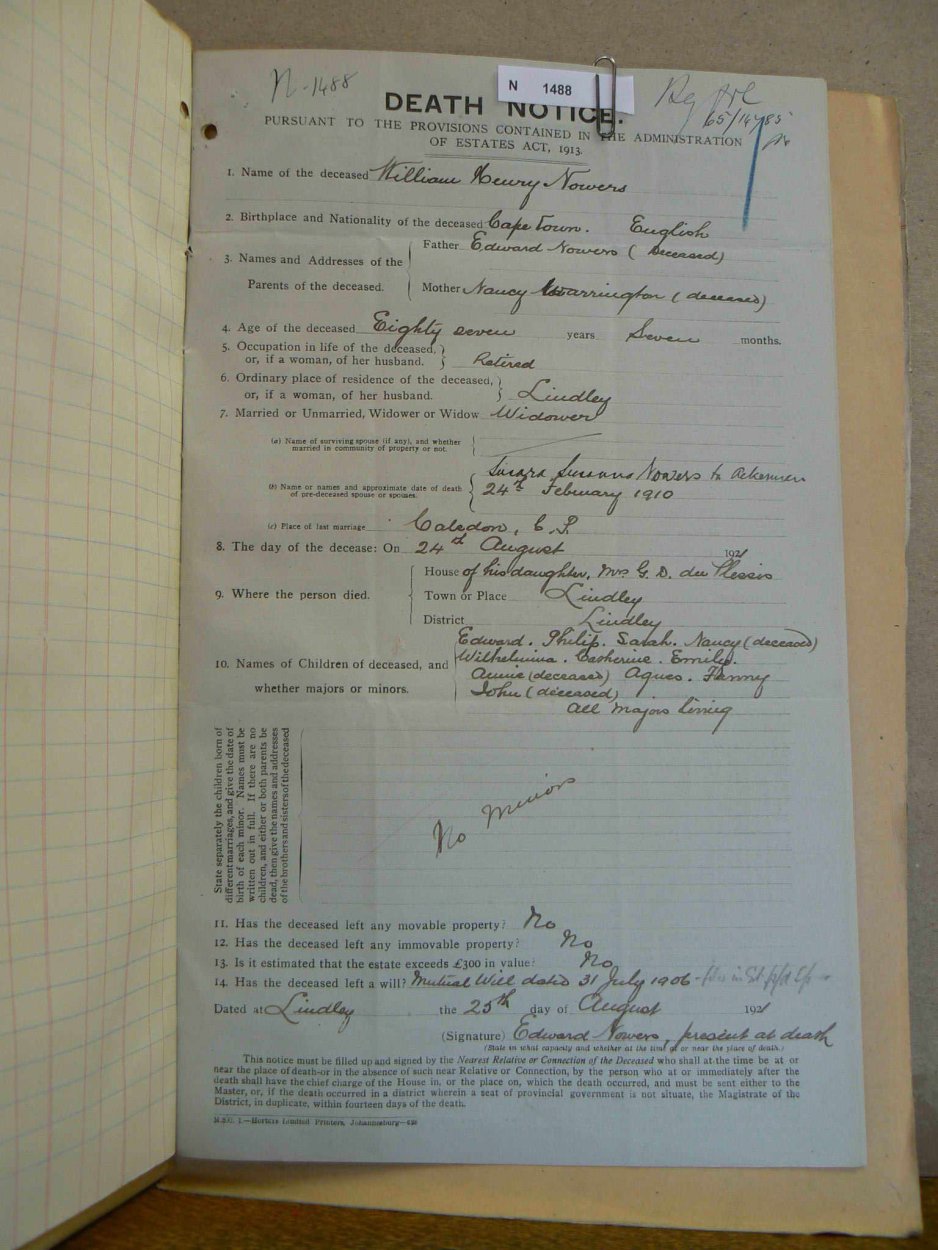 N-1488
N 1488
65/14785
DEATH NOTICE.
PURSUANT TO THE PROVISIONS CONTAINED IN THE ADMINISTRATION
OF ESTATES ACT, 1913.
1. Name of the deceased William Henry Nowers
2. Birthplace and Nationality of the deceased Cape Town. English
3. Names and Addresses of the Parents of the deceased.
Father Edward Nowers (Deceased)
Mother Nancy Warrington (deceased)
4. Age of the deceased Eighty seven years Seven months.
5. Occupation in life of the deceased, or, if a woman, of her husband. } Retired
6. Ordinary place of residence of the deceased, or, if a woman, of her husband. } Lindley
7. Married or Unmarried, Widower or Widow Widower
(a) Name of surviving spouse (if any), and whether
married in community of property or not.
(b) Name or names and approximate date of death
of pre-deceased spouse or spouses.
Susanna Nowers
24th February 1910
(c) Place of last marriage Caledon, C.P.
8. The day of the decease: On 24th August 1921
9. Where the person died.
House of his daughter, Mrs G. D. du Plessis
Town or Place Lindley
District Lindley
10. Names of Children of deceased, and
whether majors or minors.
Edward. Philip. Sarah. Nancy (deceased)
Wilhelmina. Catherine. Emily.
Annie (deceased) Agnes. Fanny
John (deceased)
all Majors living
State separately the children born of
different marriages, and give the date of
birth of each minor. Names must be
written out in full. If there are no
children, and either or both parents be
dead, then give the names and addresses
of the brothers and sisters of the deceased
No Minor
11. Has the deceased left any movable property? No
12. Has the deceased left any immovable property? No
13. Is it estimated that the estate exceeds £300 in value? No
14. Has the deceased left a will? Mutual Will dated 31 July 1906
Dated at Lindley the 25th day of August 1921
(Signature) Edward Nowers, present at death
(State in what capacity and whether at the time at or near the place of death.)
This notice must be filled up and signed by the Nearest Relative or Connection of the Deceased who shall at the time be at or
near the place of death-or in the absence of such near Relative or Connection, by the person who at or immediately after the
death shall have the chief charge of the House in, or the place on, which the death occurred, and must be sent either to the
Master, or, if the death occurred in a district wherein a seat of provincial government is not situate, the Magistrate of the
District, in duplicate, within fourteen days of the death.
Hortors Limited Printers, Johannesburg